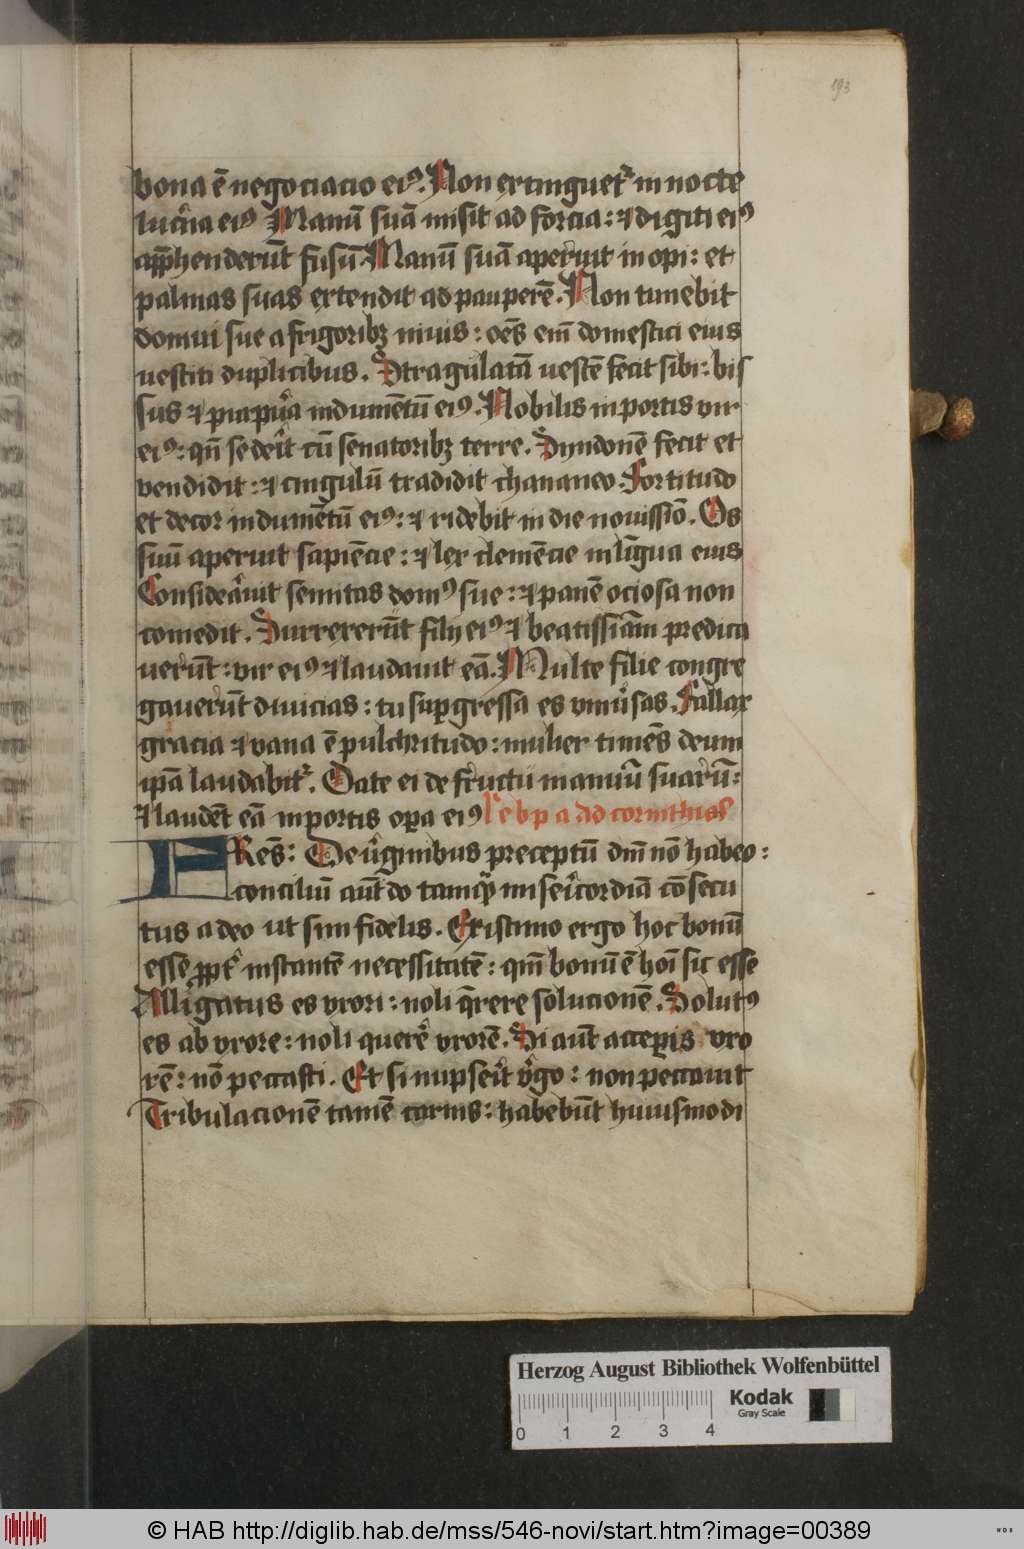 193
bona ē negociacio eiꝰ. Non extinguet᷑ in nocte
lucͥna eiꝰ Manū suā misit ad forcia: ⁊ digiti eiꝰ
app̄henderūt fusū. Manū suā apͥuit inopi: et
palmas suas extendit ad pauperē. Non timebit
domui sue a frigoribꝫ niuis: oēs em̄ domestici eius
uestiti duplicibus. Stragulatā uestē fecit sibi: bis
sus ⁊ purpͣa indumētū eiꝰ. Nobilis in portis vir
eiꝰ: qn̄ sedeͥt cū senatoribꝫ terre. Syndonē fecit et
vendidit: ⁊ cingulū tradidit chananeo. Fortitudo
et decor indumētū eiꝰ: ⁊ ridebit in die nouissīo. Os
suū aperuit sapiēcie: ⁊ lex clemēcie in līgua eius
Consideͣuit semitas domꝰ sue: ⁊ panē ociosa non
comedit. Surrexerūt filij eiꝰ ⁊ beatissīam predica
uerūt: vir eiꝰ ⁊ laudauit eā. Multe filie congre
gauerūt diuicias: tu suꝑgressa es vniūsas. Fallax
gracia ⁊ vana ē pulchritudo: mulier timēs deum
ipā laudabit᷑. Date ei de fructu manuū suarū:
⁊ laudēt eā in portis oꝑa eiꝰ l'e b p a ad corinthios
FRes: De uͥginibus preceptū dm̄ nō habeo:
conciliū aūt do tamqͣ miseͥcordiā cōsecu
tus a deo ut sim fidelis. Existimo ergo hoc bonū
esse ꝓpt᷑ instantē necessitatē: qm̄ bonū ē hoī sic esse
Alligatus es vxori: noli qͣrere solucionē. Solutꝰ
es ab vxore: noli querē vxorē. Si aūt acceꝑis vxo
rē: nō peccasti. Et si nupseͥt vͥgo: non peccauit
Tribulacionē tamē carnis: habebūt huiusmodi
Herzog August Bibliothek Wolfenbüttel
0 1 2 3 4
Kodak
Gray Scale
© HAB http://diglib.hab.de/mss/546-novi/start.htm?image=00389
HAB